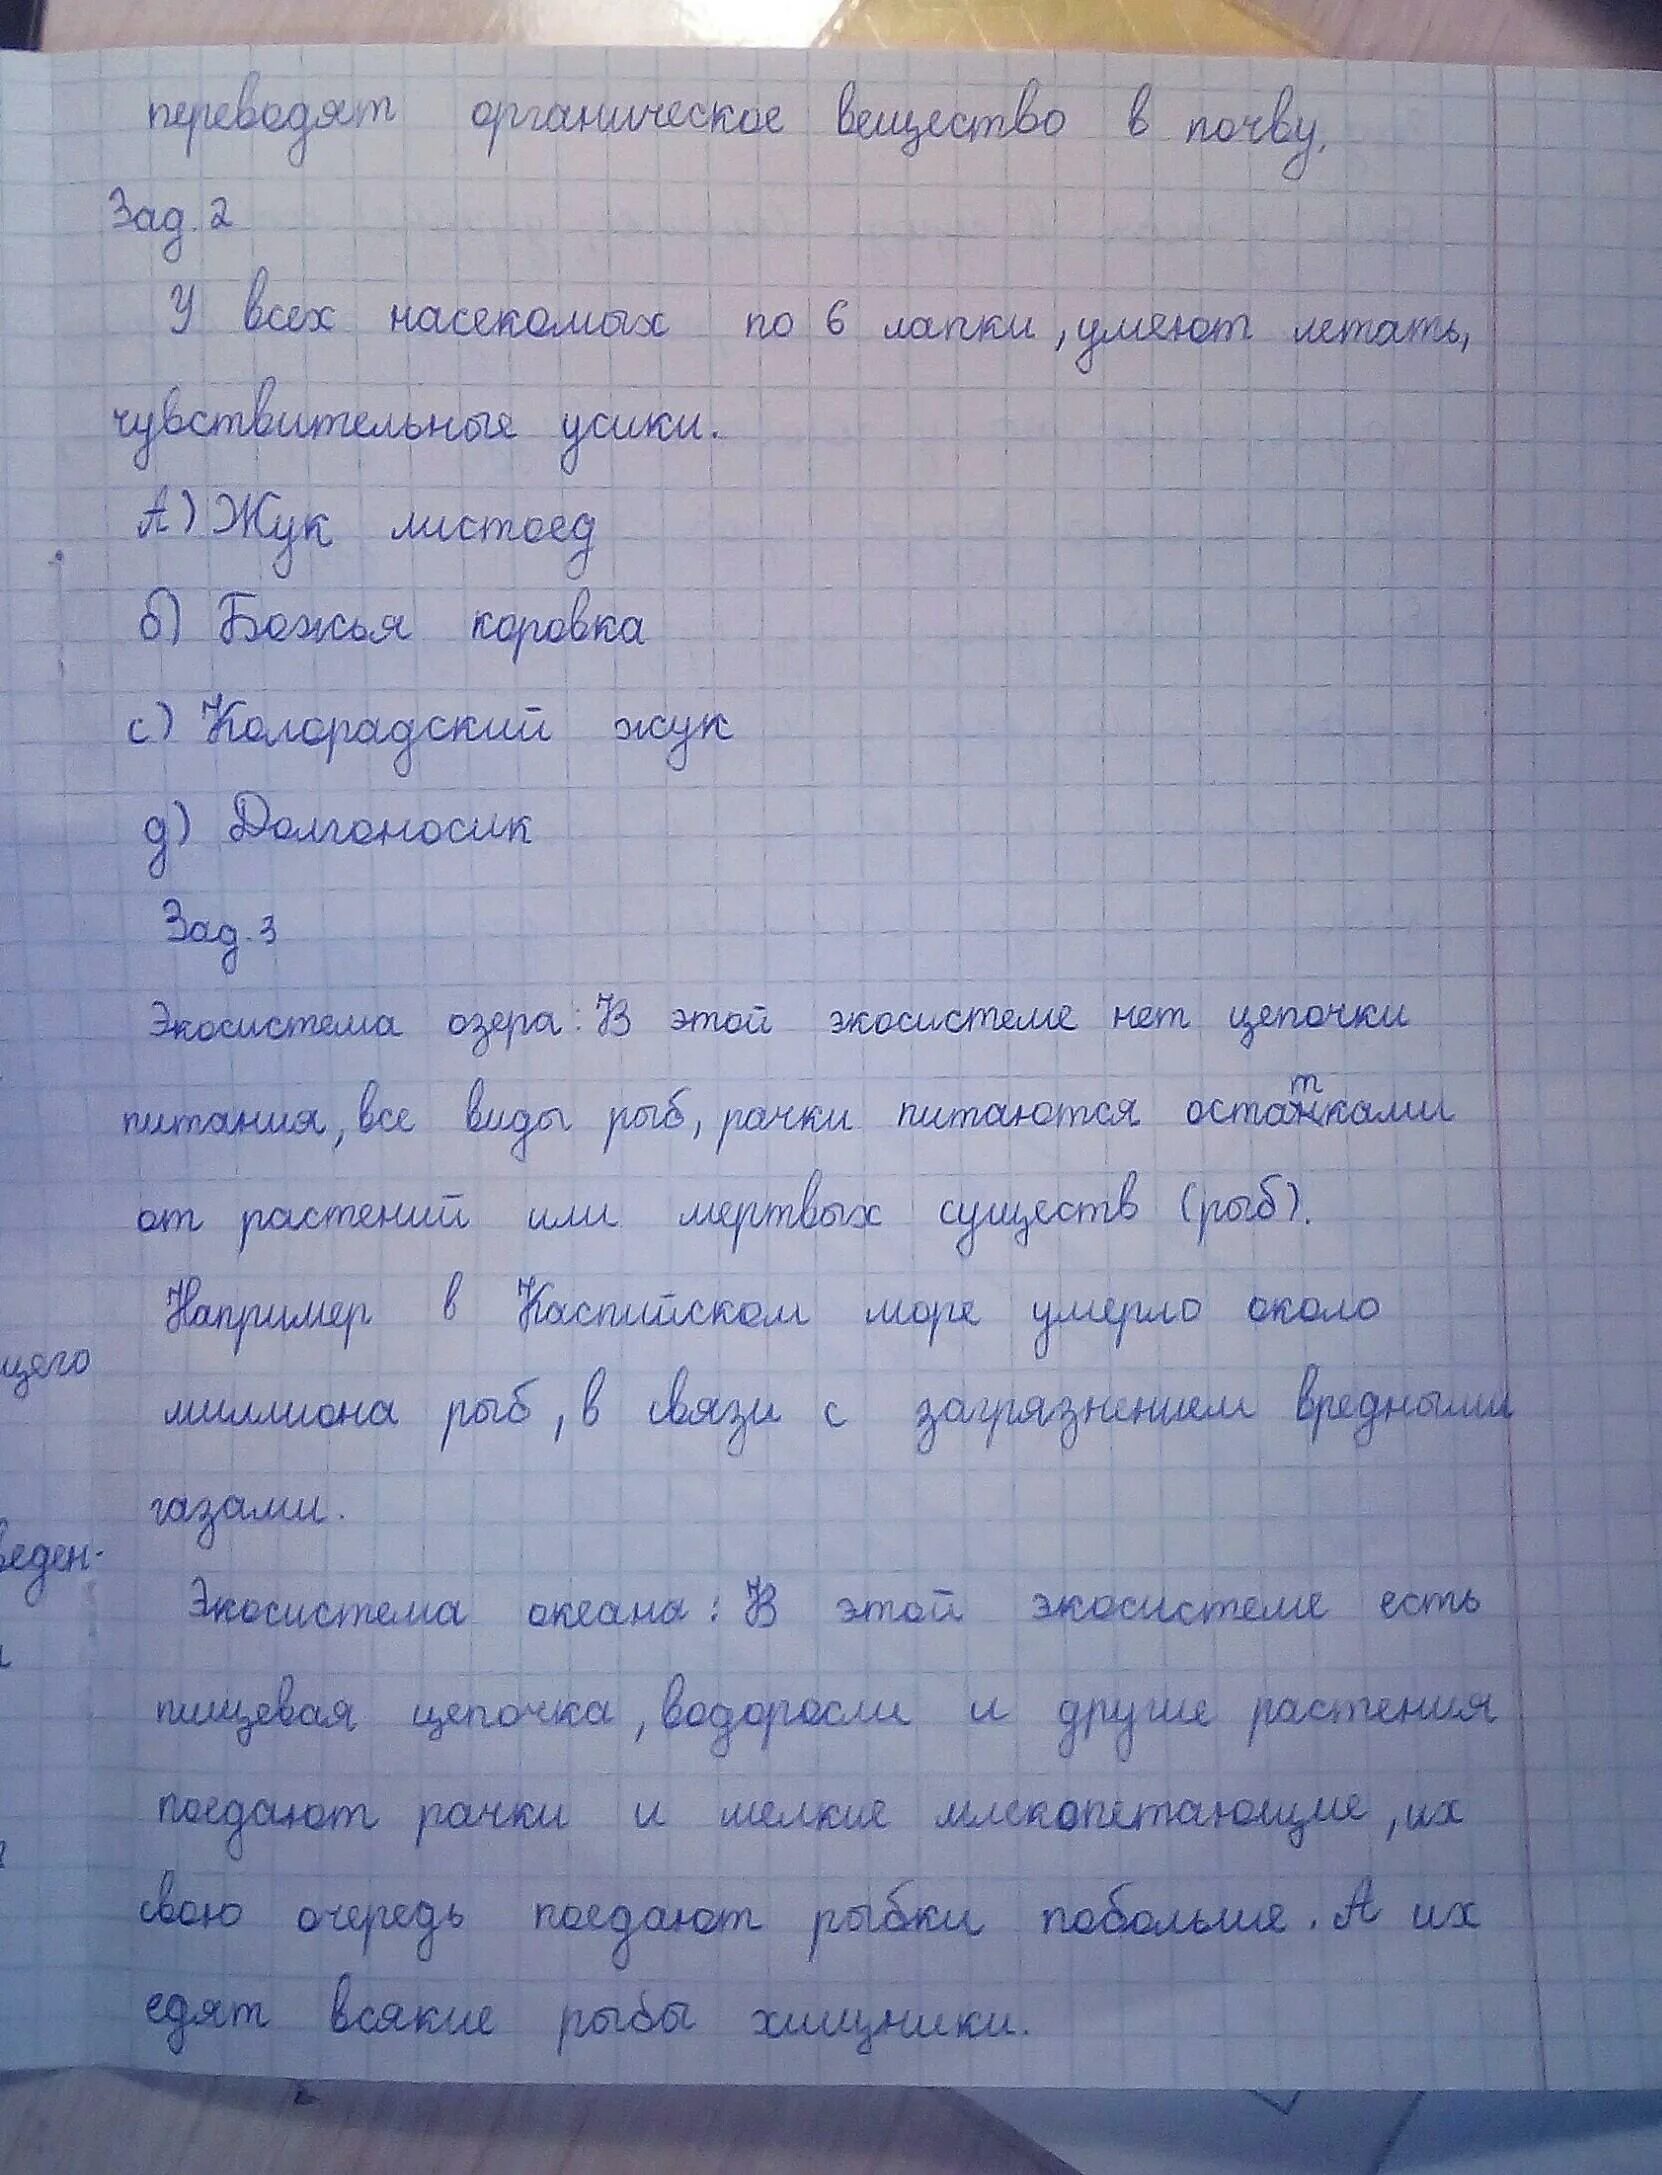 переводят органическое вещество в почву.
Зад. 2
У всех насекомых по 6 лапки, умеют летать,
чувствительные усики.
А) Жук листоед
б) Божья коровка
с) Колорадский жук
д) Долгоносик
Зад. 3
Экосистема озера: В этой экосистеме нет цепочки
питания, все виды рыб, рачки питаются остатками
от растений или мертвых существ (рыб).
Например в Каспийском море умерло около
миллиона рыб, в связи с загрязнением вредными
газами.
Экосистема океана: В этой экосистеме есть
пищевая цепочка, водоросли и другие растения
поедают рачки и мелкие млекопетающие, их
свою очередь поедают рыбки побольше. А их
едят всякие рыбы хищники.
щего
веден-